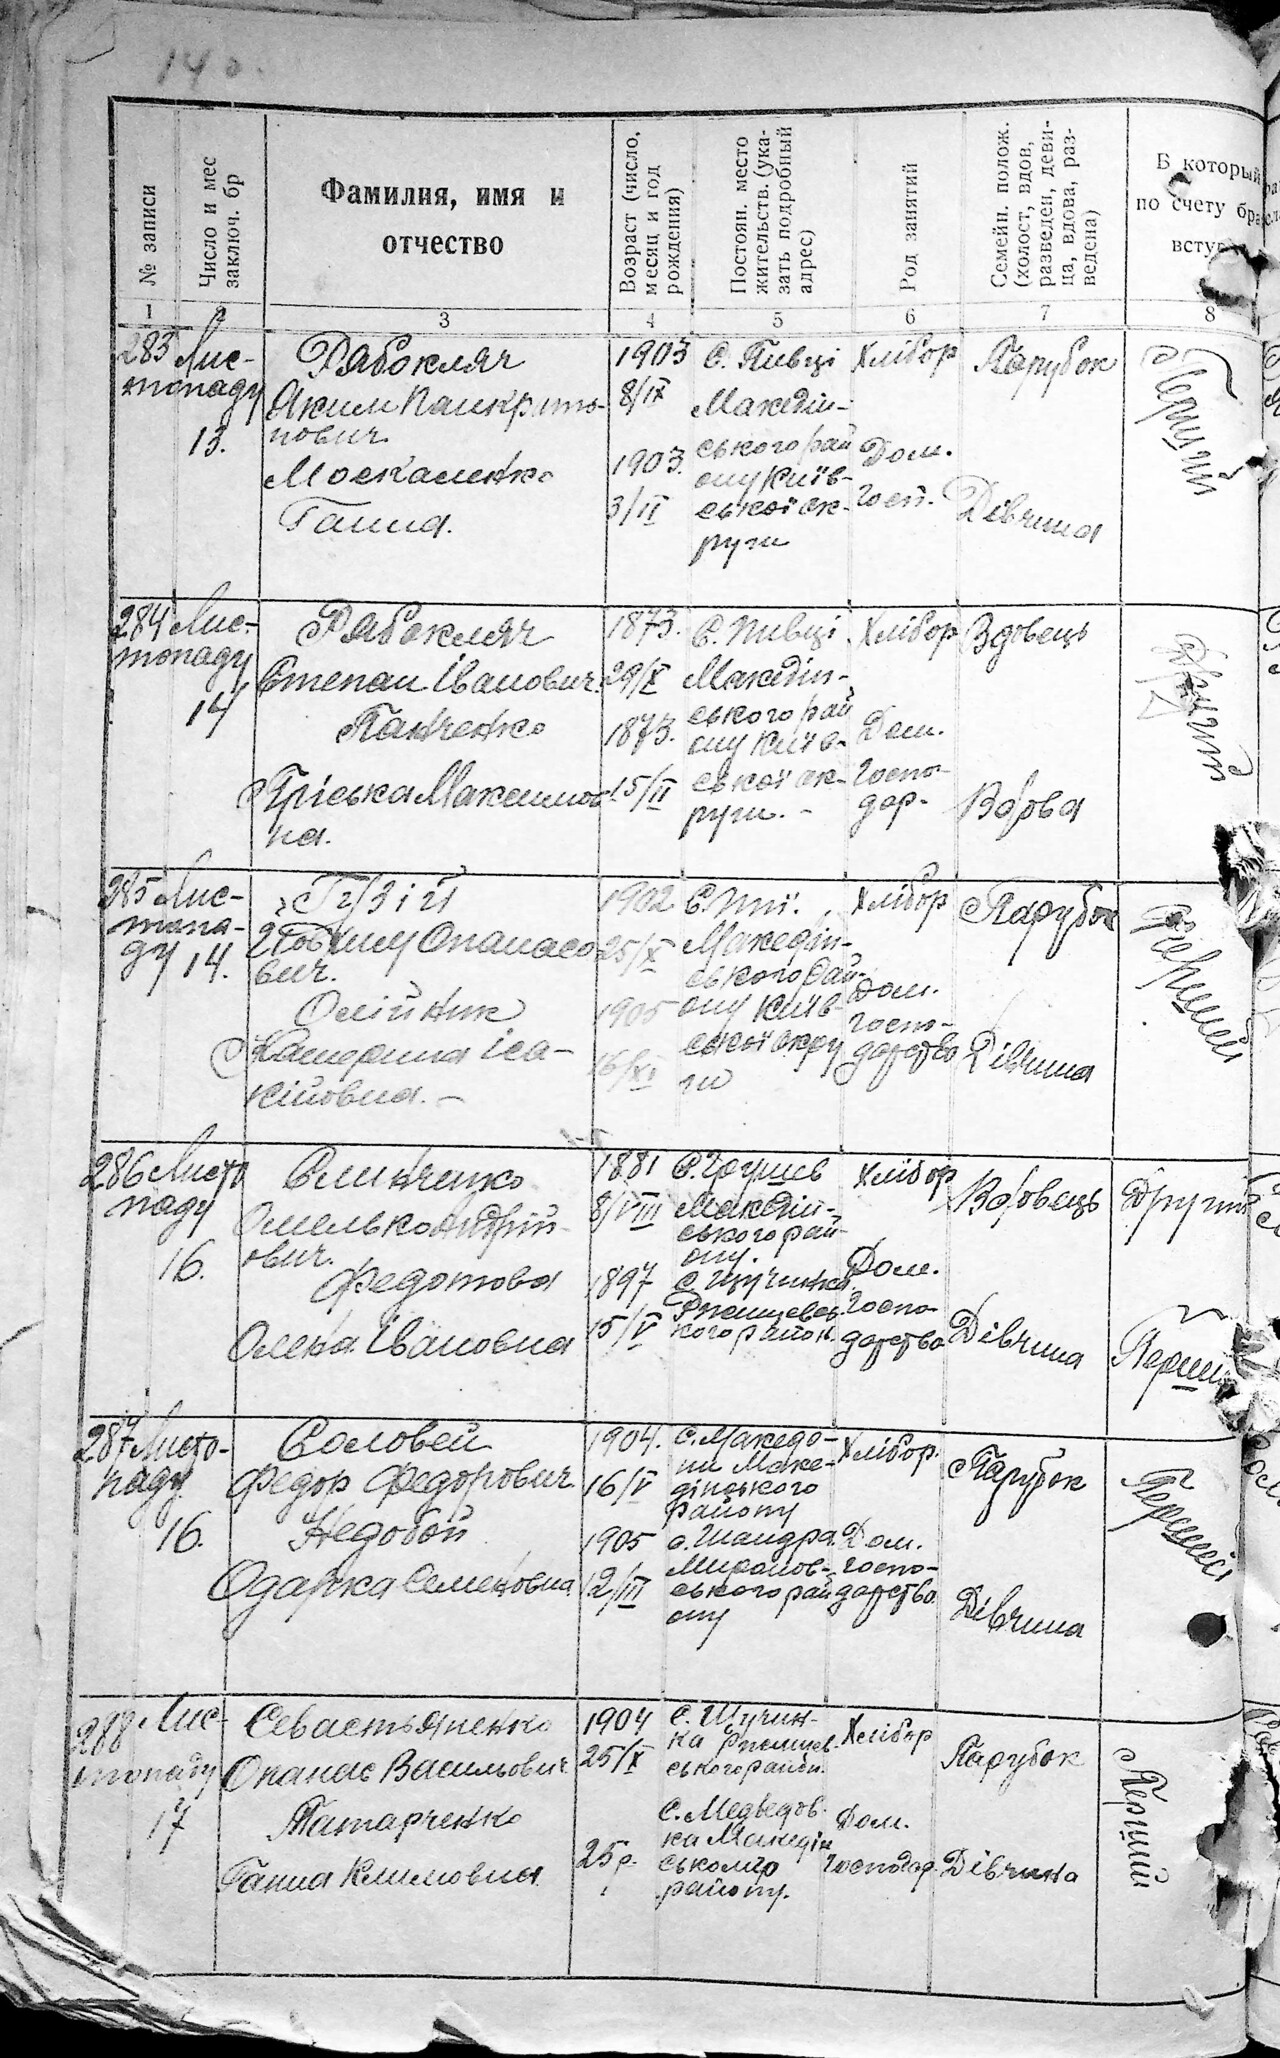 140.
№ записи
Число и мес
заключ. бр
Фамилия, имя и
отчество
Возраст (число,
месяц и год
рождения)
Постоян. место
жительств. (ука-
зать подробный
адрес)
Род занятий
Семейн. полож.
(холост, вдов,
разведен, деви-
ца, вдова, раз-
ведена)
В который
по счету бра
всту
1 2 3 4 5 6 7 8
283 Лис-
топаду
13.
Рябокляч
Яким Панкрато-
нович.
Москаленко
Ганна.
1903
8/IX
1903.
3/II
С. Пивці
Македін-
ського рай
ону Київ-
ської ок-
руги
Хлібор
Дом.
госп.
Парубок
Дівчина
Перший
284 Лис-
топаду
14
Рябокляч
Степан Іванович.
Панченко
Пріська Максимов
на.
1873.
29/X
1873.
15/II
С. Пивці
Македін-
ського рай
ону Київ-
ської ок-
руги. -
Хлібор
Дом.
Госпо-
дар.
Вдовець
Вдова
Другий
285 Лис-
топа-
ду 14.
Гузій
Явтому Опанасо
вич.
Олійник
Катерина Іса-
кійовна. -
1902
25/X
1905
16/XI
Македін-
ського рай-
ону Київ-
ської окру
ги
Хлібор
Дом.
госпо-
дарство
Парубок
Дівчина
Перший
286 Листо
паду
16.
Слинченко
Омелько Андрій-
ович.
Федотова
Олена Івановна
1881
8/VIII
1897
15/V
С. Грушев
Македін-
ського рай-
ону.
с. Щучинка
Ржищевсь
кого район.
Хлібор
Дом.
Госпо-
дарство
Вдовець
Дівчина
Другий
Перши
287 Листо-
паду
16.
Соловей
Федор Федорович
Недобой
Одарка Семеновна
1904.
16/V
1905
12/III
С. Македо-
ни Маке-
дінського
району
с. Шандра
Миронов-
ського рай
ону
Хлібор.
Дом.
госпо-
дарство
Парубок
Дівчина
Перший
288 Лис-
топаду
17
Севастьяненко
Опанас Васильович
Татарченко
Ганна Климовна
1904
25/X
25 р.
С. Щучин-
ка Ржищев-
ського район.
С. Медведов-
ка Македін
ського
району.
Хлібор
Дом.
Господар.
Парубок
Дівчина
Перший